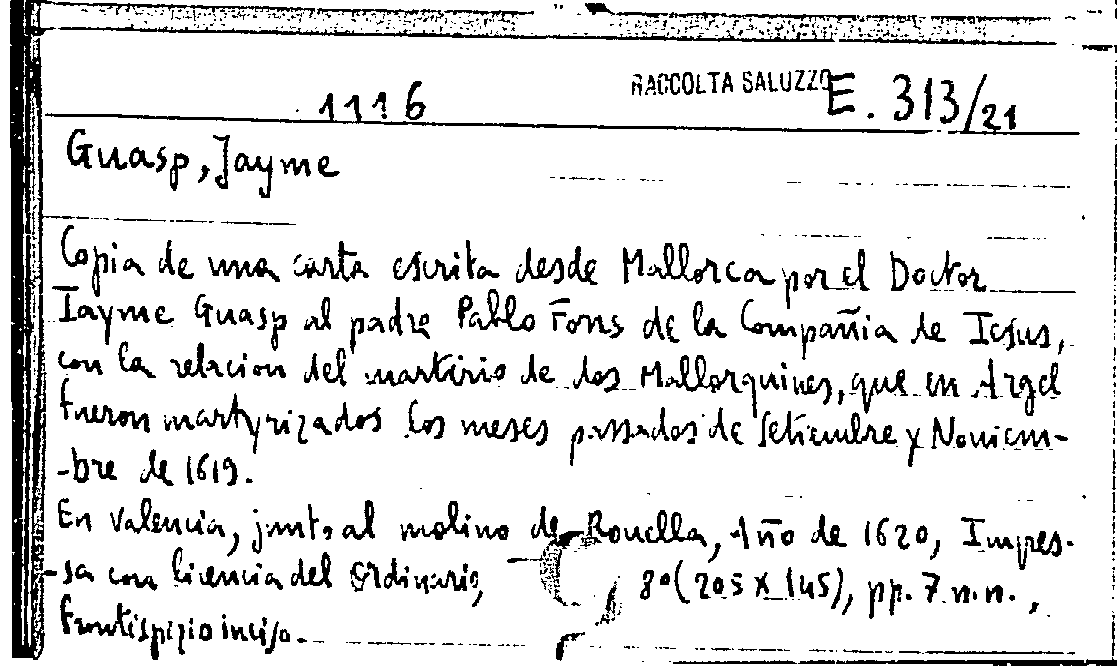 1116 RACCOLTA SALUZZO E. 313/21
Guasp, Jayme
Copia de una carta escrita desde Mallorca por el Doctor
Iayme Guasp al padre Pablo Fons de la Compañia de Iesus,
con la relacion del martirio de dos Mallorquines, que en Argel
fueron martyrizados los meses passados de Setiembre y Nouiem-
-bre de 1619.
En Valencia, junto al molino de Rouella, Año de 1620, Impres-
-sa con licencia del Ordinario, 8º (205 X 145), pp. 7 n.n.,
frontispizio inciso.